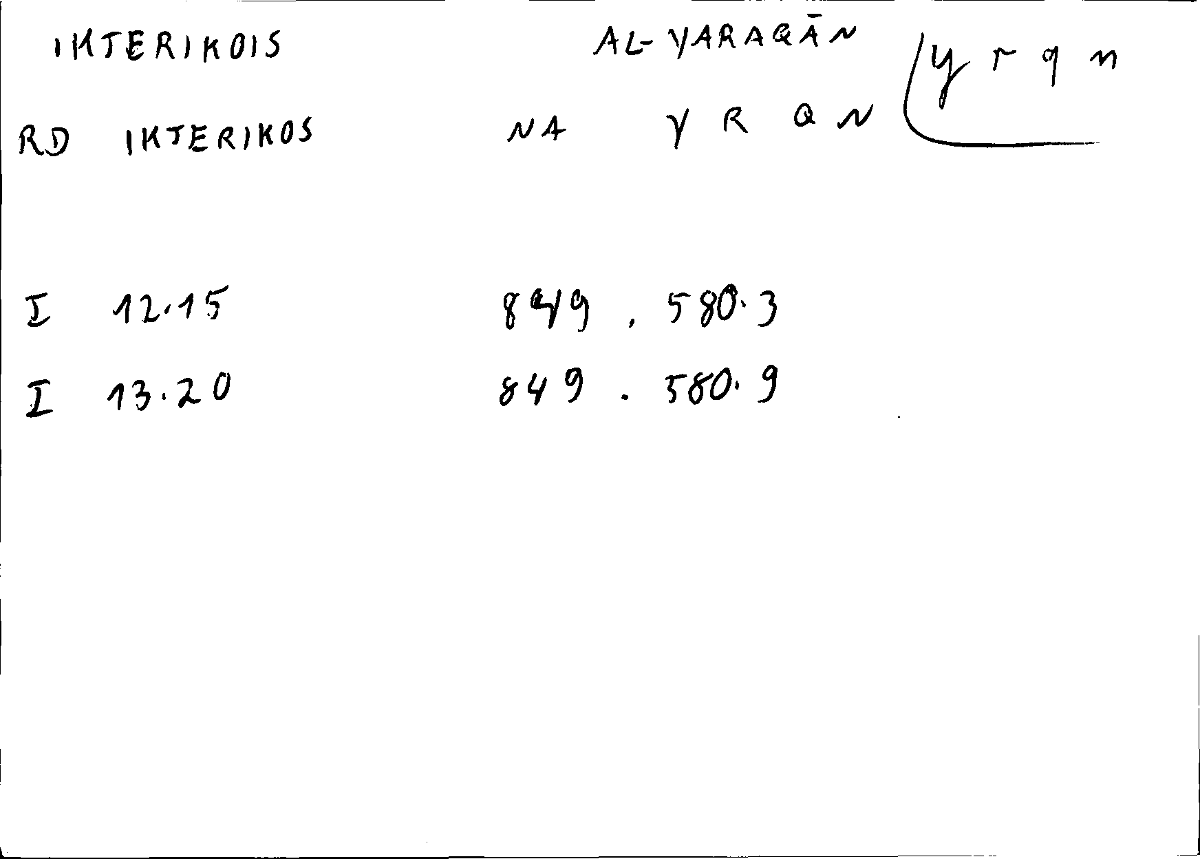 IKTERIKOIS AL-YARAQĀN y r q n
RD IKTERIKOS NA Y R Q N
I 12.15 849 . 580.3
I 13.20 849 . 580.9